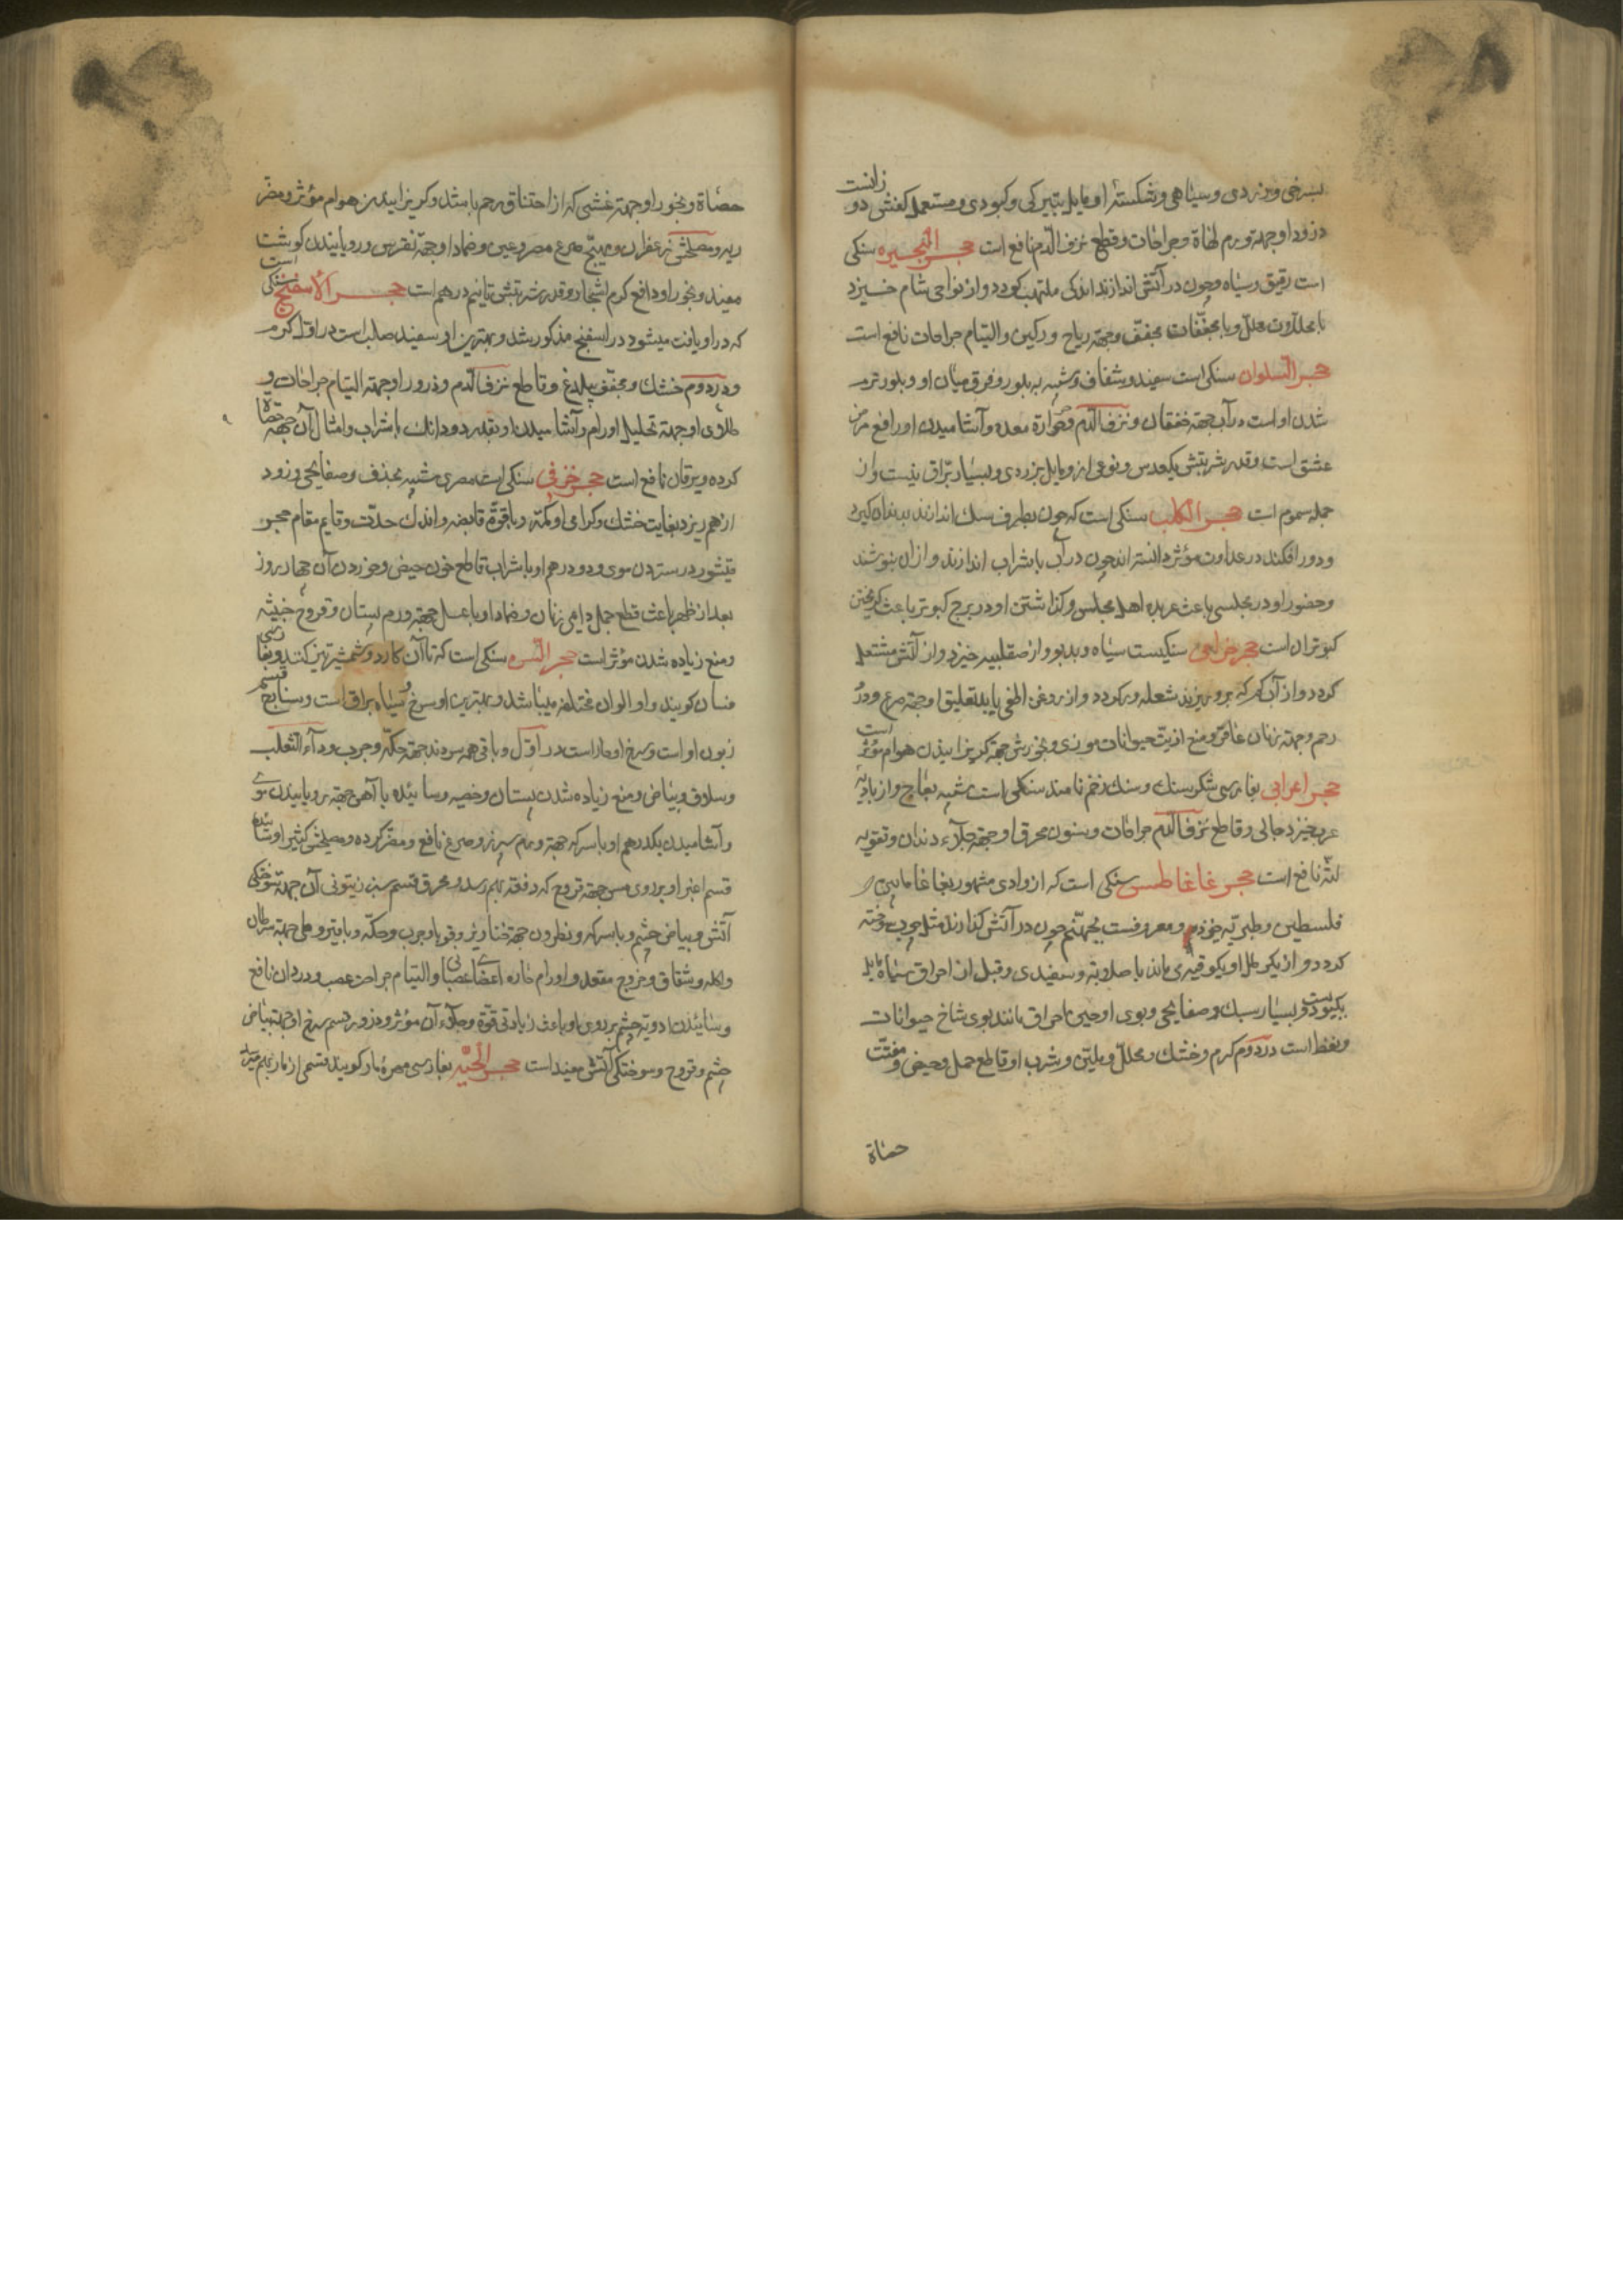 بسرخی و زردی و سیاهی و شکستهٔ او مایل بتیرکی و کبودی و مستعمل کفشی دوزانست
درور او جهتهٔ ورم لهاة و جراحات و قطع نزف الدم نافع است حجر البحیره سنکی
است رقیق و سیاه و چون در آتش اندازند اندکی ملتهب کردد و از نواحی شام خیزد
با محللات محلل و با مجففات مجفف و جهته ریاح ورکین و التیام جراحات نافع است
حجر السلوان سنکی است سفید و شفاف و شبیه به بلور و فرق میان او و بلور نرم
شدن او است در آب جهته خفقان و نزف الدم و حرارة معده و آشامیدن او رافع مرض
عشق است و قدر شربتش یکعدس و نوعی از و مایل بزردی و بسیار براق نیست و از
جمله سموم است حجر الکلب سنکی است که چون بطرف سک اندازند بدندان کیرد
و دور افکند در عداوت مؤثر دانسته اند چون در آب یا شراب اندازند و از ان بنوشند
و حضور او در مجلسی باعث عربده اهل مجلس و کذاشتن او در برج کبوتر باعث کریختن
کبوتران است حجر خزامی سنکیست سیاه و بدبو و از صقلیه خیزد و از آتش مشتعل
کردد و از آب که برو بریزند شعله ور کردد و از روغن اطفی یابد تعلیق او جهته صرع و درد
رحم و جهته زنان عاقر و منع اذیت حیوانات موذی و بخورش جهته کریزانیدن هوام مؤثر است
حجر اعرابی بفارسی شکر سنک و سنک زخم نامند سنکی است شبیه بعاج و از بادیهٔ
عرب خیزد جالی و قاطع نزف الدم جراحات و سنون محرق او جهته جلاء دندان و تقویه
لثه نافع است حجر غاغاطیس سنکی است که از وادی مشهور بغاغا مابین
فلسطین و طبریه خیزد و معروفست بجهنم چون در آتش کذارند مثل چوب سوخته
کردد و از یکرطل او یکوقیه می ماند با صلابة و سفیدی و قبل از احراق سیاه مایل
بکبودیست و بسیار سبک و صفایحی و بوی او حین احراق مانند بوی شاخ حیوانات
و نفط است در دوم کرم و خشک و محلل و ملین و شرب او قاطع حمل و حیض و مفتت
حصاة
حصاة و بخور او جهته غشی که از اختناق رحم باشد و کریزانیدن هوام مؤثر و مضر
ریه و مصلحش زعفران و مهیج صرع مصروعین و ضماد او جهته نقرس و رویانیدن کوشت
مفید و بخور او دافع کرم اشجار و قدر شربتش تا نیم درهم است حجر الاسفنج سنکی است
که در او یافت میشود در اسفنج مذکور شد و بهترین او سفید صلب است در اول کرم
و در دوم خشک و مجفف بیلدغ و قاطع نزف الدم و ذرور او جهته التیام جراحات و
طلای او جهته تحلیل اورام و آشامیدن او بقدر دو دانک با شراب و امثال آن جهته حصاة
کرده و یرقان نافع است حجر خزفی سنکی است مصری شبیه بخذف و صفایحی و زود
از هم ریزد بغایت خشک و کرمی او کمتر و با قوة قابضه و اندک حدت و قایم مقام حجر
قیشور در ستردن موی و دو درهم او با شراب قاطع خون حیض و خوردن آن چهار روز
بعد از طهر باعث قطع حمل دایمی زنان و ضماد او با عسل جهته ورم پستان و قروح خبیثه
و منع زیاده شدن مؤثر است حجر المسن سنکی است که تا آن کارد و شمشیر تیز کنند و بفارسی
فسان کویند و او الوان مختلفه میباشد و بهترین او سرخ و سیاه براق است و سنابج قسم
زبون او است و سرخ او حار است در اول و باقی همه سردند جهته حکه و جرب و داء الثعلب
و سلاق و بیاض و منع زیاده شدن پستان و خصیه و سائیده با آهن جهته رویانیدن موی
و آشامیدن یکدرهم او با سرکه جهته ورم سپرز و صرع نافع و مضر کرده و مصلحش کثیرا و سائیدهٔ
قسم اغبر او بر روی مس جهته قروح که دفعه بهم رسد و محرق قسم سبز زیتونی آن جهته سوختکی
آتش و بیاض چشم و با سرکه و نطرون جهته خنازیر و قوبا و جرب و حکه و با قیروطی جهته سرطان
و اکله و شقاق و خروج مقعد و اورام حاره اعضای عصبانی و التیام جراحت عصب و درد ان نافع
و سائیدن ادویه چشم بر روی او باعث زیادتی قوة و جلاء آن مؤثر و ذرور قسم سرخ او جهته بیاض
چشم و قروح و سوختکی آتش مفید است حجر الحیه بفارسی مهرهٔ مار کویند قسمی از مار بهم میرسد